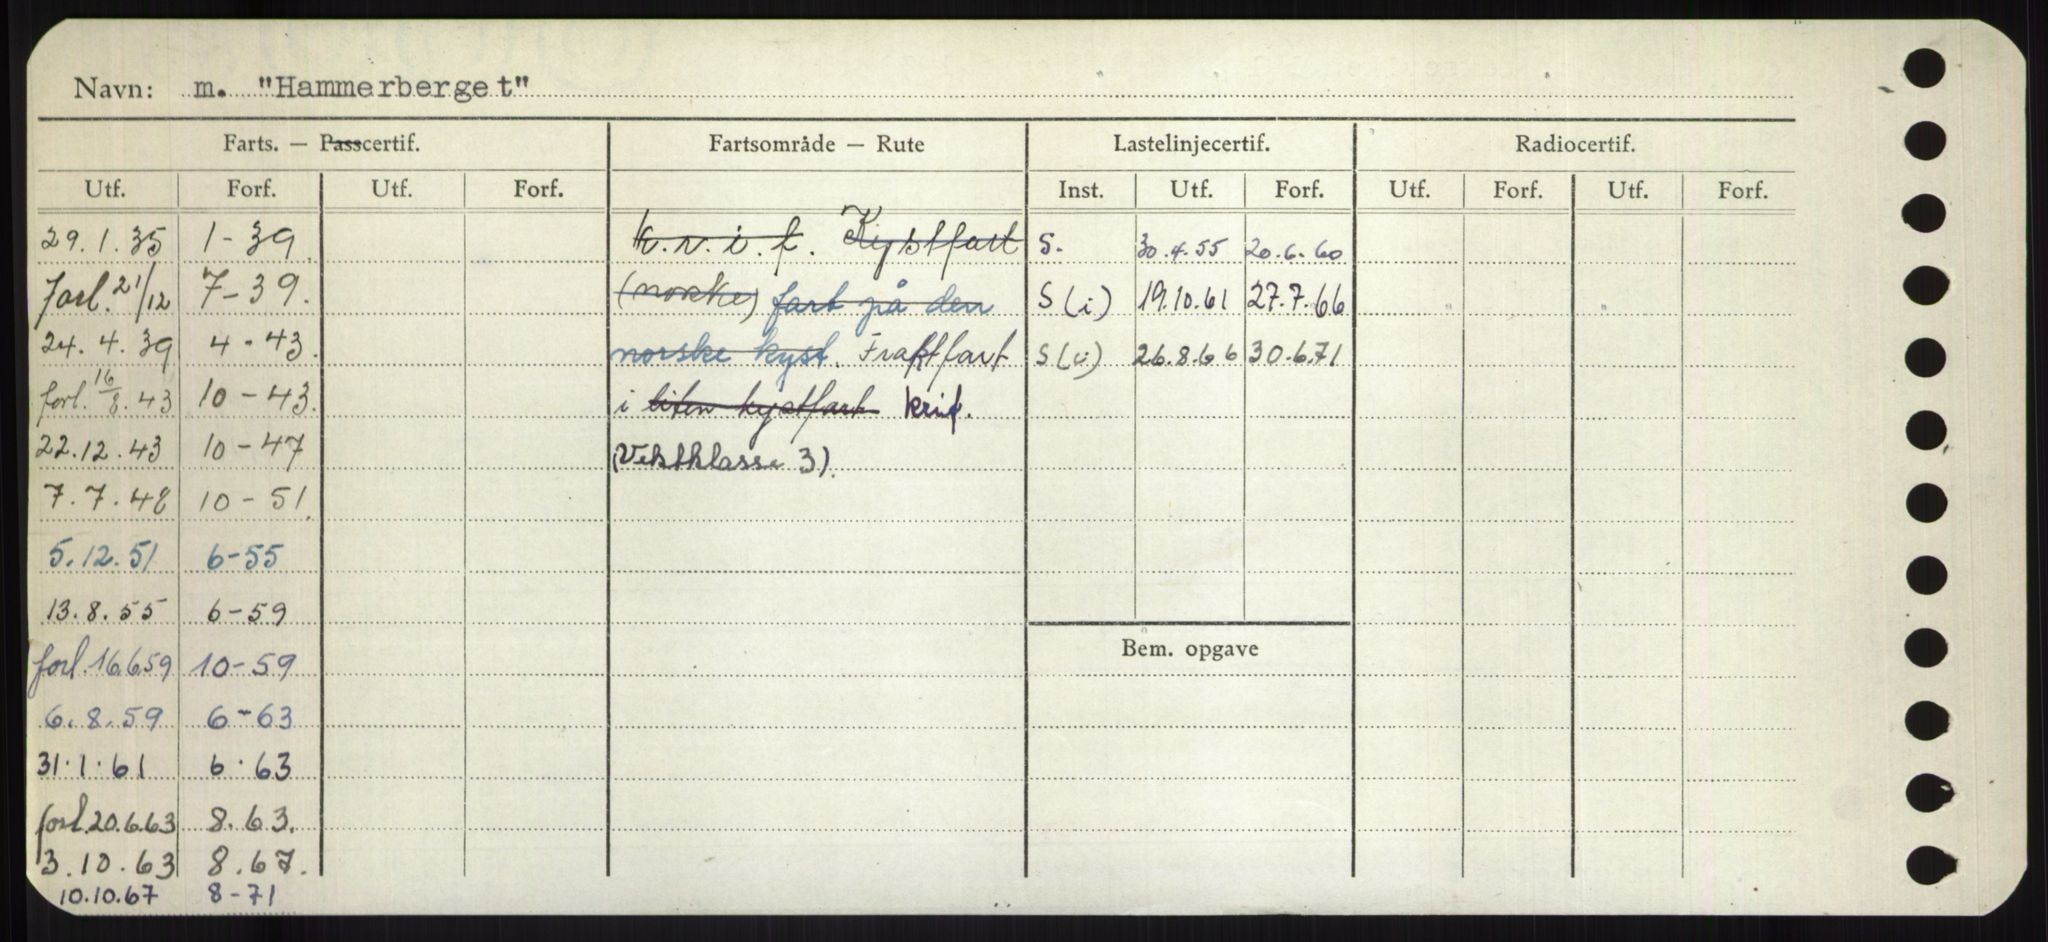 Navn: m. "Hammerberget"
Farts. — Passcertif. Fartsområde — Rute Lastelinjecertif. Radiocertif.
Utf. Forf. Utf. Forf. Inst. Utf. Forf. Utf. Forf. Utf. Forf.
29.1.35 1-39. k.r.i.f. Kystfart S. 30.4.55 20.6.60
forl. 21/12 7-39. (norske) fart på den S (i) 19.10.61 27.7.66
24.4.39 4-43. norske kyst. Fraktfart S (i) 26.8.66 30.6.71
forl. 16/8.43 10-43. i liten kystfart krif.
22.12.43 10-47 (Vektklasse 3).
7.7.48 10-51.
5.12.51 6-55
13.8.55 6-59
Bem. opgave
forl. 16.6.59 10-59
6.8.59 6-63
31.1.61 6.63
forl. 20.6.63 8.63.
3.10.63 8.67.
10.10.67 8-71